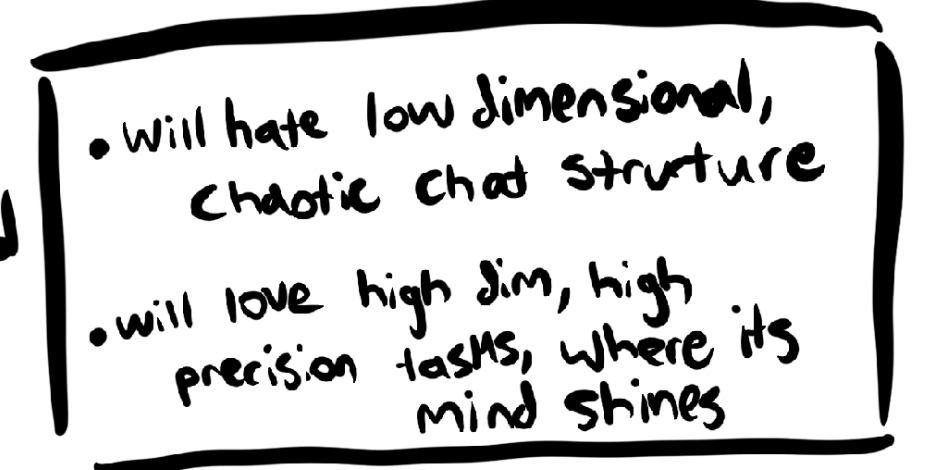 • will hate low dimensional,
chaotic chat struture
• will love high dim, high
precision tasks, where its
mind shines